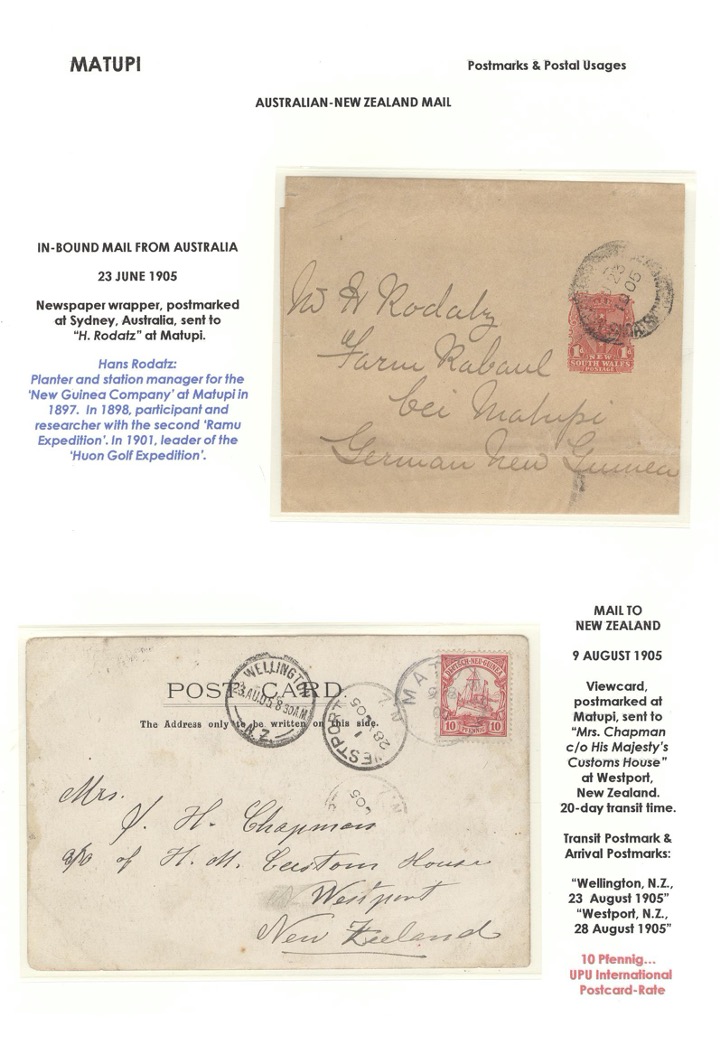 MATUPI
Postmarks & Postal Usages
AUSTRALIAN-NEW ZEALAND MAIL
IN-BOUND MAIL FROM AUSTRALIA
23 JUNE 1905
Newspaper wrapper, postmarked
at Sydney, Australia, sent to
"H. Rodatz" at Matupi.
Hans Rodatz:
Planter and station manager for the
'New Guinea Company' at Matupi in
1897. In 1898, participant and
researcher with the second 'Ramu
Expedition'. In 1901, leader of the
'Huon Golf Expedition'.
23
05
1D
1D
NEW
SOUTH WALES
POSTAGE
Mr H Rodatz
Farm Rabaul
bei Matupi
German New Guinea
MAIL TO
NEW ZEALAND
9 AUGUST 1905
Viewcard,
postmarked at
Matupi, sent to
"Mrs. Chapman
c/o His Majesty's
Customs House"
at Westport,
New Zealand.
20-day transit time.
Transit Postmark &
Arrival Postmarks:
"Wellington, N.Z.,
23 August 1905"
"Westport, N.Z.,
28 August 1905"
10 Pfennig...
UPU International
Postcard-Rate
POST CARD.
The Address only to be written on this side.
WELLINGTON
23.AU.05.8 30AM
N.Z.
WESTPORT N.Z.
28 AU 05
MAT
DEUTSCH-NEU-GUINEA
10 PFENNIG 10
N.Z.
05
Mrs.
J. H. Chapman
c/o of H. M. Custom House
Westport
New Zeeland